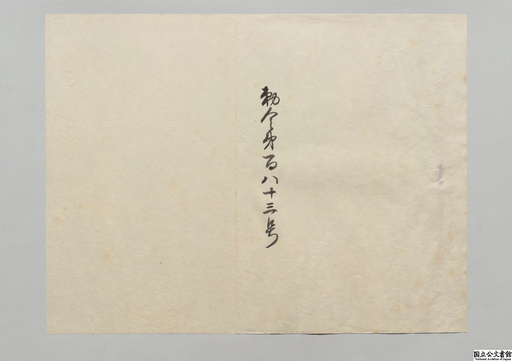 勅令第百八十三号
国立公文書館
National Archives of Japan